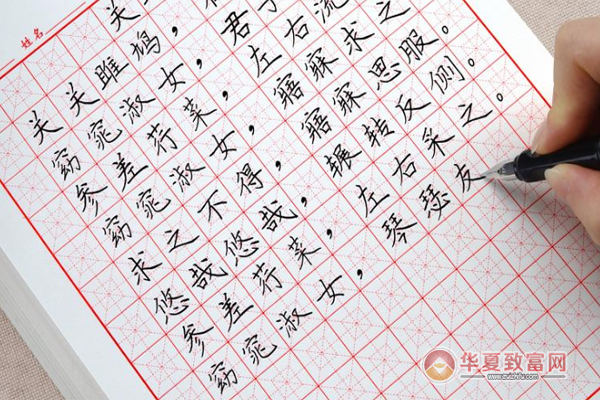 姓名
关
关关雎鸠，
窈窕淑女，君子
参差荇菜，左右流
窈窕淑女，寤寐求之
求之不得，寤寐思服。
悠哉悠哉，辗转反侧。
参差荇菜，左右采之。
窈窕淑女，琴瑟友
华夏致富网